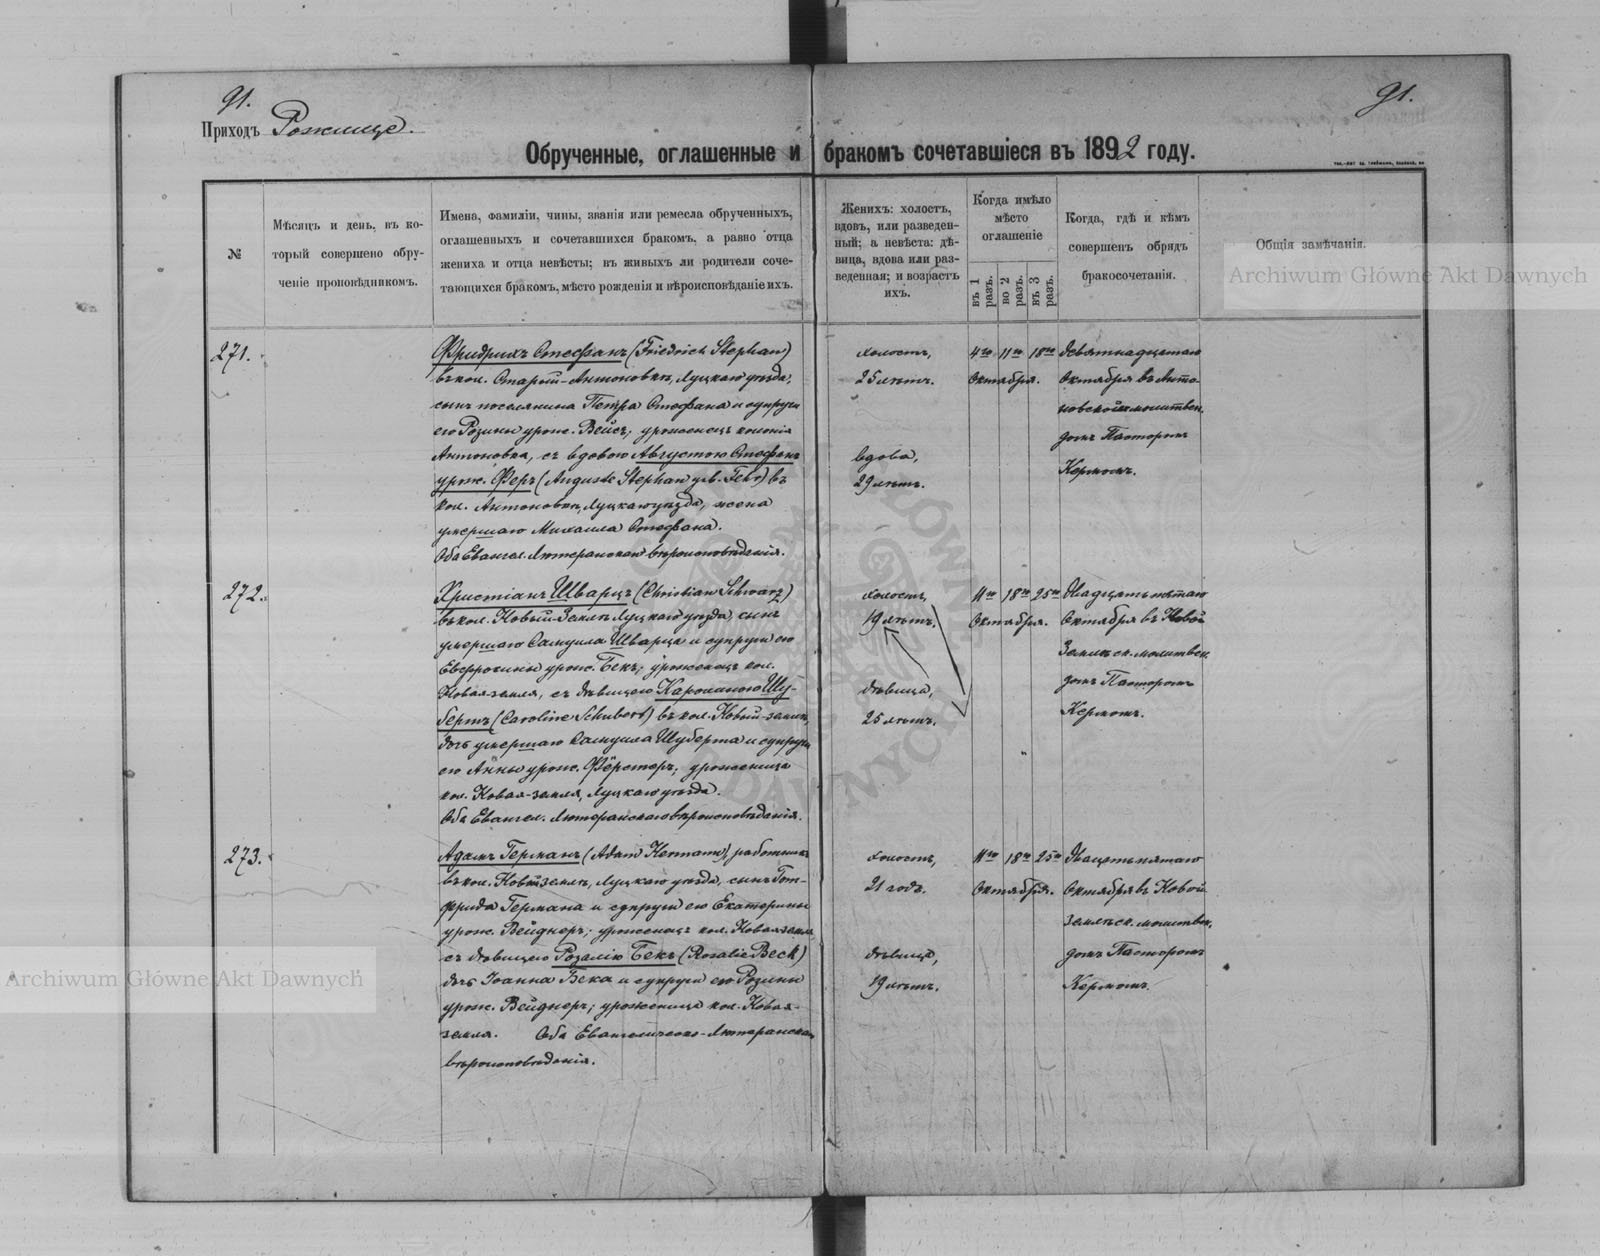 91.
91.
Приходъ Рожище.
Обрученные, оглашенные и бракомъ сочетавшіеся въ 1892 году.
№
Мѣсяцъ и день, въ ко-
торый совершено обру-
ченіе проповѣдникомъ.
Имена, фамиліи, чины, званія или ремесла обрученныхъ,
оглашенныхъ и сочетавшихся бракомъ, а равно отца
жениха и отца невѣсты; въ живыхъ ли родители соче-
тающихся бракомъ, мѣсто рожденія и вѣроисповѣданіе ихъ.
Женихъ: холостъ,
вдовъ, или разведен-
ный; а невѣста: дѣ-
вица, вдова или раз-
веденная; и возрастъ
ихъ.
Когда имѣло
мѣсто
оглашеніе
въ 1 разъ.
во 2 разъ.
въ 3 разъ.
Когда, гдѣ и кѣмъ
совершенъ обрядъ
бракосочетанія.
Общія замѣчанія.
Archiwum Główne Akt Dawnych
271.
Фридрихъ Стефанъ (Friedrich Stephan)
въ кол. Старой-Антоновкѣ, Луцкаго уѣзда,
сынъ поселянина Петра Стефана и супруги
его Розины урож. Вейсъ; уроженецъ колоніи
Антоновка, съ вдовою Августою Стефанъ
урож. Феръ (Auguste Stephan geb. Fehr) въ
кол. Антоновкѣ, Луцкаго уѣзда, жена
умершаго Михаила Стефана.
Оба Евангел. Лютеранскаго вѣроисповѣданія.
холостъ,
25 лѣтъ.
вдова,
29 лѣтъ.
4го 11го 18го
Октября.
девятнадцатаго
Октября въ Анто-
новской молитвен.
домѣ Пасторомъ
Кермомъ.
272.
Христіанъ Шварцъ (Christian Schwarz)
въ кол. Новый-Землѣ Луцкаго уѣзда, сынъ
умершаго Самуила Шварца и супруги его
Евфросины урож. Бекъ; уроженецъ кол.
Новая-земля, съ дѣвицею Каролиною Шу-
бертъ (Caroline Schubert) въ кол. Новый-землѣ,
дочь умершаго Самуила Шуберта и супруги
его Анны урож. Фёрстеръ; уроженица
кол. Новая-земля, Луцкаго уѣзда.
Оба Евангел. Лютеранскаго вѣроисповѣданія.
холостъ,
19 лѣтъ.
дѣвица,
25 лѣтъ.
11го 18го 25го
Октября.
двадцать пятаго
Октября въ Новой
Землѣ ск. молитвен.
домѣ Пасторомъ
Кермомъ.
273.
Адамъ Германъ (Adam Hermann), работникъ
въ кол. Новой землѣ, Луцкаго уѣзда, сынъ Гот-
фрида Германа и супруги его Екатерины
урож. Вейднеръ; уроженецъ кол. Новая земля
съ дѣвицею Розалію Бекъ (Rosalie Beck)
дочь Іоанна Бека и супруги его Розины
урож. Вейднеръ; уроженица кол. Новая-
земля. Оба Евангелическо-Лютеранскаго
вѣроисповѣданія.
холостъ,
21 годъ.
дѣвица,
19 лѣтъ.
11го 18го 25го
Октября.
двадцать пятаго
Октября въ Новой
землѣ ск. молитвен.
домѣ Пасторомъ
Кермомъ.
Archiwum Główne Akt Dawnych